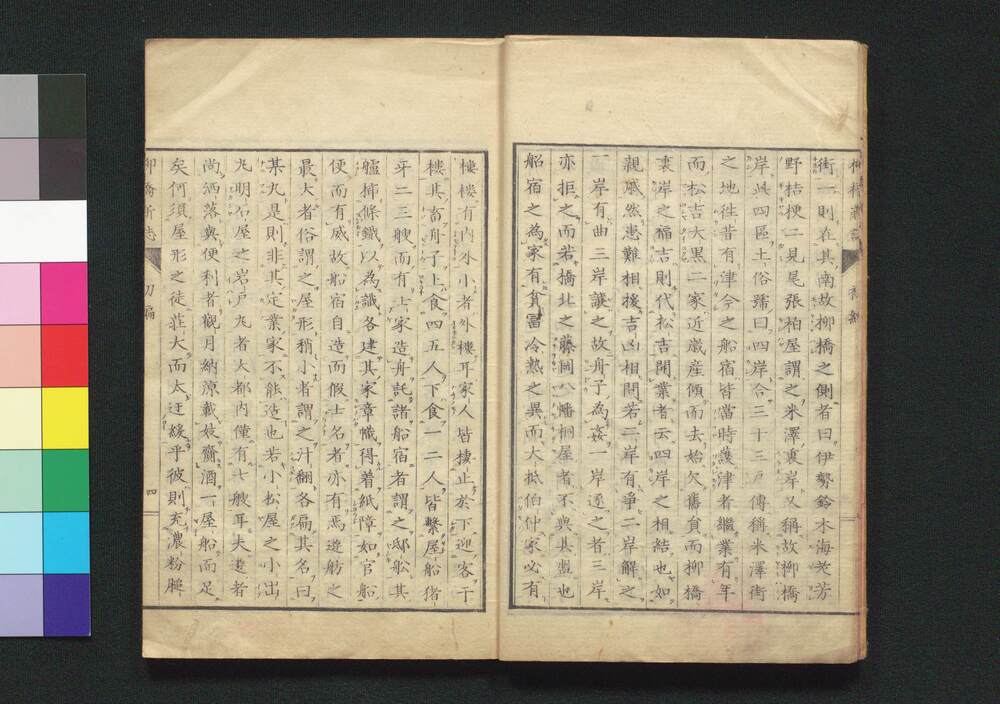 街一則在其南故柳橋之側者曰伊勢鈴木海老芳
野桔梗二見尾張柏屋謂之米澤裏岸又稱故柳橋
岸此四區土俗号曰四岸合三十三戸傳稱米澤街
之地徃昔有津今之船宿皆當時護津者繼業有年
而松吉大黒二家近歳産傾而去始欠舊負而柳橋
裏岸之福吉則代松吉開業者云四岸之相結也如
親戚然患難相援吉凶相問若二岸有爭二岸解之
一岸有曲三岸議之故舟子為姦一岸逐之者三岸
亦拒之而若橋北之藤岡八幡桐屋者不與其盟也
船宿之為家有貧冨冷熱之異而大抵伯仲家必有
樓樓有内外小者外樓耳家人皆棲止於下迎客于
樓其畜舟子上食四五人下食一二人皆繫屋船猪
牙二三艘而有士家造舟託諸船宿者謂之邸舩其
艫揷條鐵以為識各建其家章幟得着紙障如官船
便而有威故船宿自造而假士名者亦有焉遊舫之
最大者俗謂之屋形稍小者謂之汁翻各扁其名曰
某丸是則非其定業家不能造也若小松屋之小出
丸明石屋之岩戸丸者大都内僅有七艘耳夫遊者
尚洒落與便利者觀月納凉載妓齎酒一屋船而足
矣何須屋形之徒莊大而太迂緩乎彼則充濃粉腿
柳橋新志
初編
四